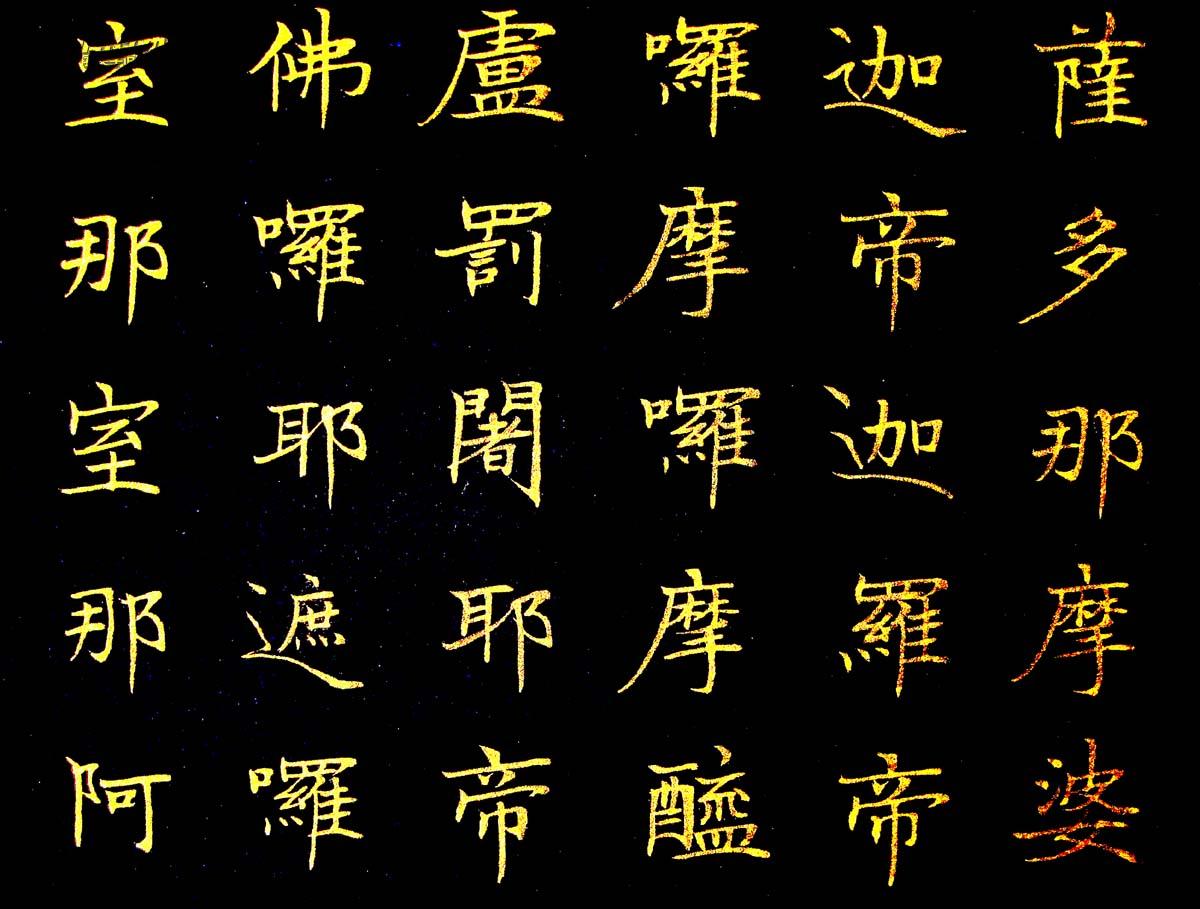 薩多那摩婆
迦帝迦羅帝
囉摩囉摩醯
盧罰闍耶帝
佛囉耶遮囉
室那室那阿